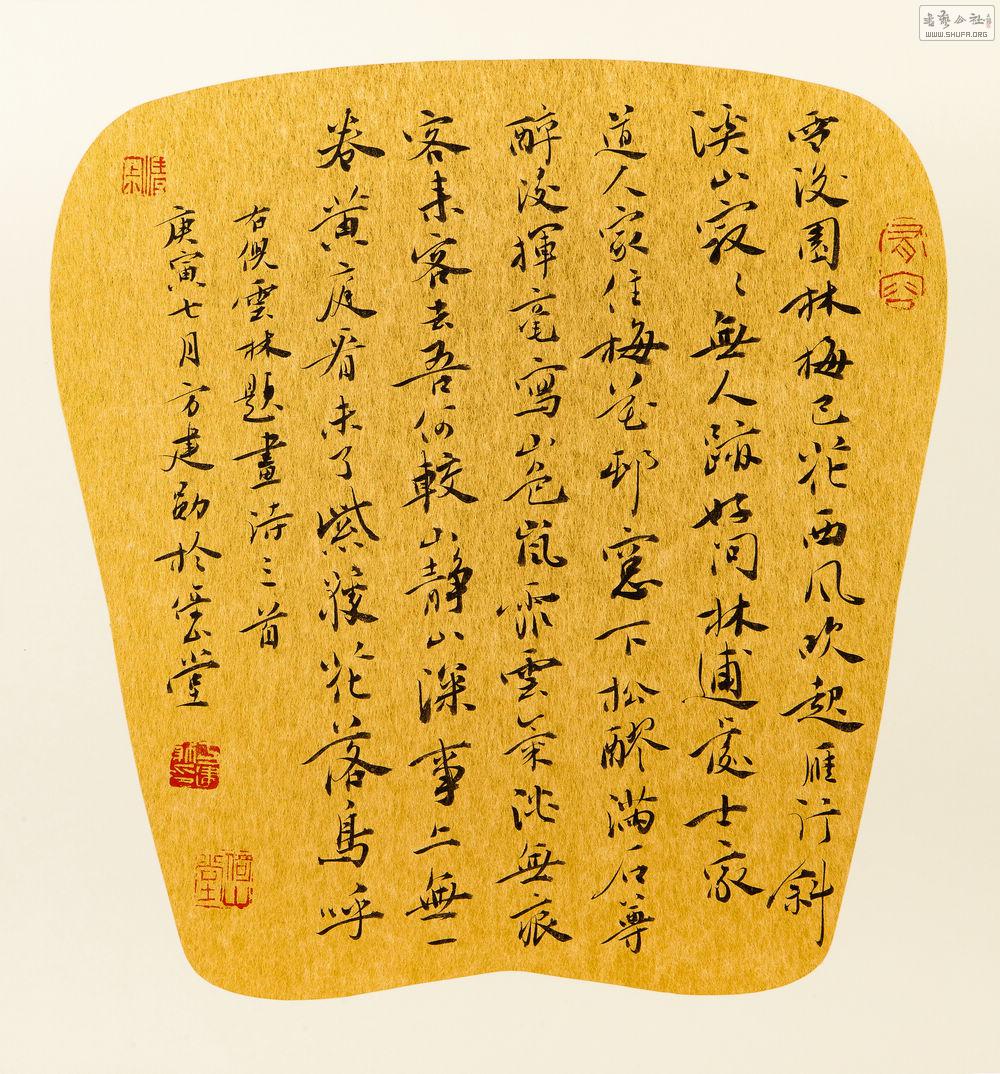 雪后園林梅已花西風吹起雁行斜
溪山寂〻無人跡好问林逋處士家
道人家住梅花邨窓下松醪满石尊
醉後揮毫寫山色嵐霏雲氣淡無痕
客来客去吾何較山静山深事亦無一
卷黄庭看未了紫藤花落鳥呼
右倪雲林題畫诗三首
庚寅七月方建勛於堂
書藝公社
WWW.SHUFA.ORG